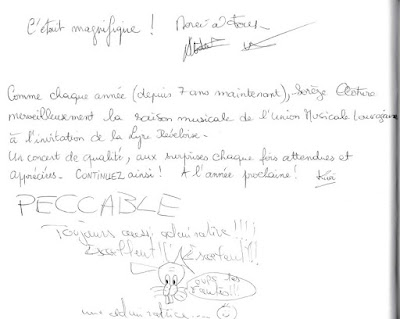 C'était magnifique ! Merci à tous
Comme chaque année (depuis 7 ans maintenant), clôture
merveilleusement la saison musicale de l'Union Musicale
à l'invitation de la Lyre
Un concert de qualité, aux surprises chaque fois attendues et
appréciées. CONTINUEZ ainsi ! A l'année prochaine !
PECCABLE
Toujours aussi admirative !!!!
une admiratrice ....